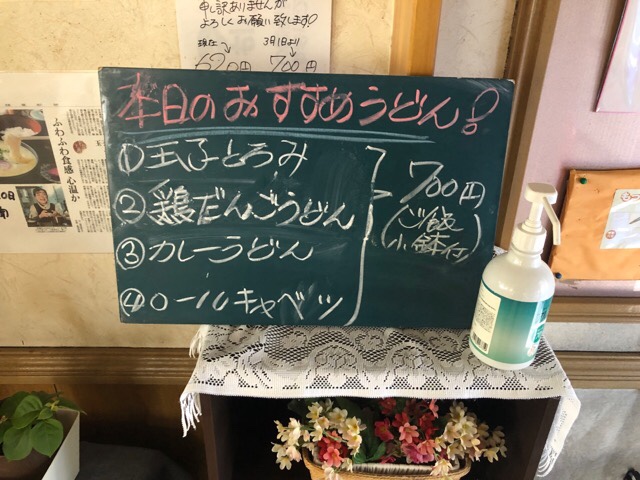 申し訳ありませんが
よろしくお願い致します!
現在 3月1日より
620円 700円
ふわふわ食感 心温か
本日のおすすめうどん!
①玉子とろみ
②鶏だんごうどん
③カレーうどん
④ロールキャベツ
700円
(ご飯
小鉢付)